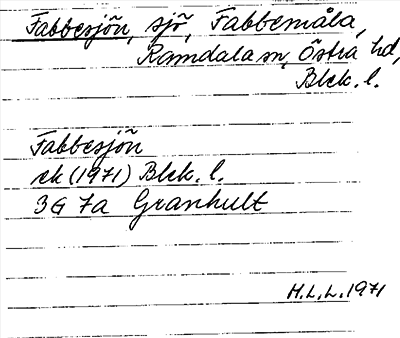 Fabbesjön, sjö, Fabbemåla,
Ramdala sn, Östra hd,
Blek. l.
Fabbesjön
ek (1971) Blek. l.
3G 7a Granhult
H.L.L. 1971